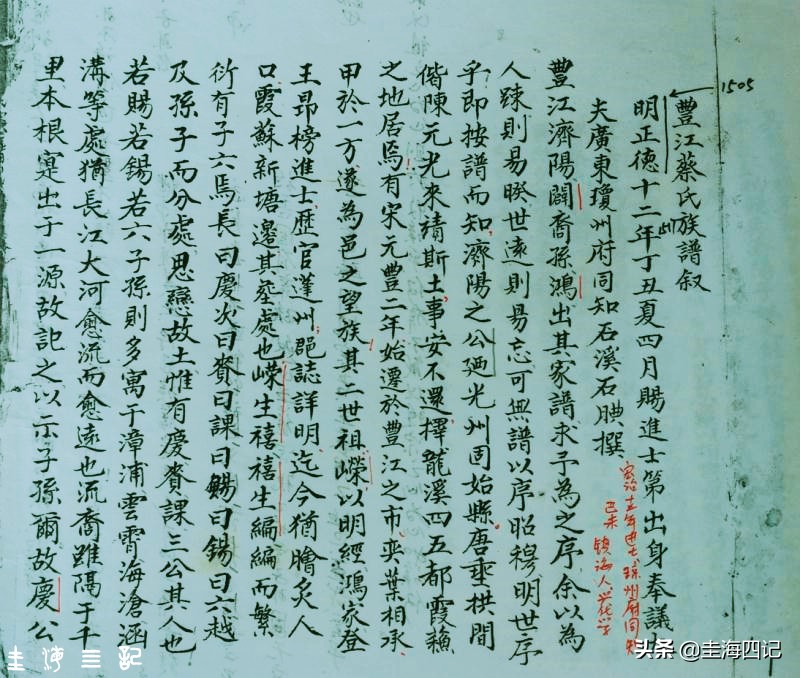 1505
豐江蔡氏族譜叙
明正德十二年丁丑夏四月賜進士第出身奉議大
夫廣東瓊州府同知石溪石腆撰
豐江濟陽闢裔孫鴻出其家譜求予為之序余以為
人踈則易暌世遠則易忘可無譜以序昭穆明世序
乎即按譜而知濟陽之公廼光州固始縣唐垂拱間
偕陳元光来靖斯土事安不還擇龍溪四五都霞籟
之地居焉有宋元豐二年始遷於豐江之市奕葉相承
甲於一方遂為邑之望族其二世祖嶸以明經鴻家登
王昂榜進士歷官蓬州郡誌詳明迄今猶膾炙人
口霞蘇新塘邊其塋處也嶸生禧禧生編編而繁
衍有子六焉長曰慶次曰賚曰課曰賜曰錫曰六越
及孫子而分處思戀故土惟有慶賚課三公其人也
若賜若錫若六子孫則多寓于漳浦雲霄海滄涵
溝等處猶長江大河愈流而愈遠也流裔雖隔于千
里本根寔出于一源故記之以示子孫爾故慶公
進士 瓊州府同知
己未 鎮海人
圭海三記
头条 @圭海四记